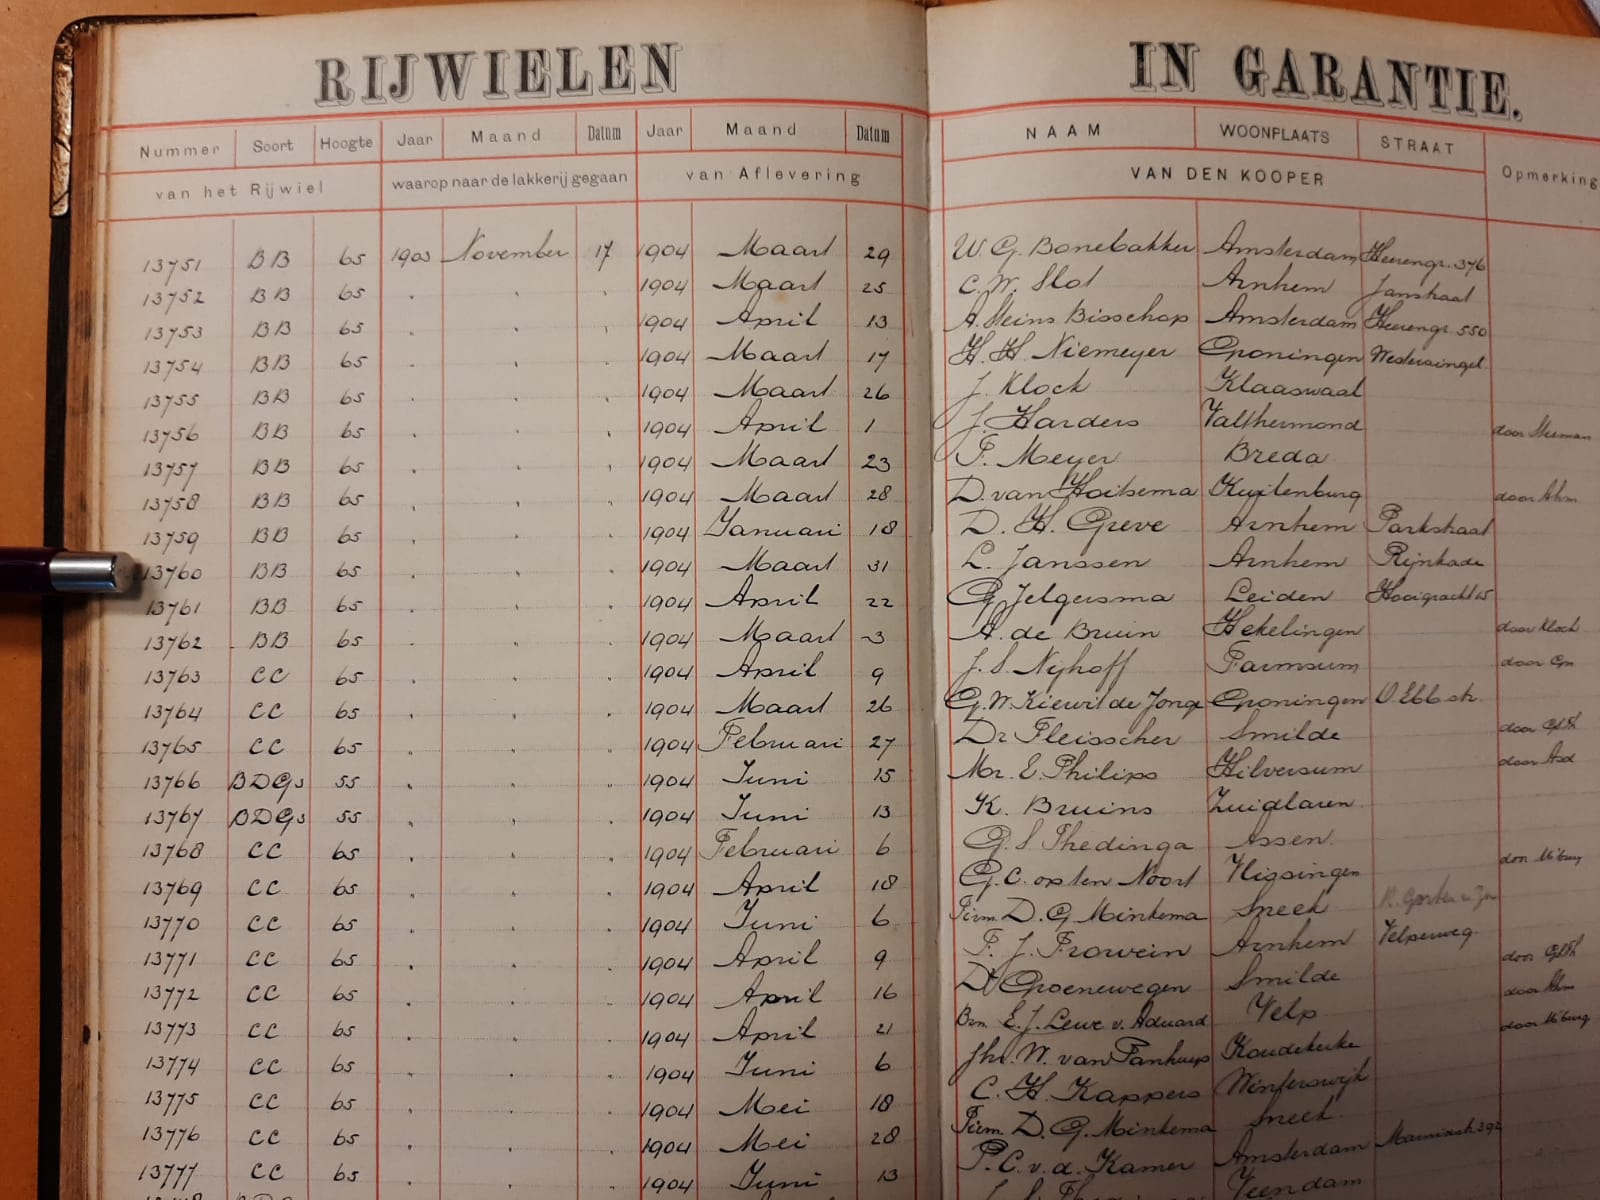 RIJWIELEN IN GARANTIE.
Nummer Soort Hoogte Jaar Maand Datum Jaar Maand Datum NAAM WOONPLAATS STRAAT Opmerking
van het Rijwiel waarop naar de lakkerij gegaan van Aflevering VAN DEN KOOPER
13751 BB 65 1903 November 17 1904 Maart 29 W. G. Bonebakker Amsterdam Heerengr. 376
13752 BB 65 . " . 1904 Maart 25 C. W. Slot Arnhem Janstraat
13753 BB 65 . " . 1904 April 13 A. Steins Bisschop Amsterdam Heerengr. 550
13754 BB 65 . " . 1904 Maart 17 H. H. Niemeyer Groningen Westersingel.
13755 BB 65 . " . 1904 Maart 26 J. Klock Klaaswaal
13756 BB 65 . " . 1904 April 1 J. Harders Valthermond door
13757 BB 65 . " . 1904 Maart 23 P. Meyer Breda
13758 BB 65 . " . 1904 Maart 28 D. van Hoitsema Kuilenburg door Ahm
13759 BB 65 . " . 1904 Januari 18 D. H. Greve Arnhem Parkstraat
13760 BB 65 . " . 1904 Maart 31 L. Janssen Arnhem Rijnkade
13761 BB 65 . " . 1904 April 22 G. Jelgersma Leiden Hooigracht 15
13762 BB 65 . " . 1904 Maart 3 A. de Bruin Hekelingen door Klock
13763 CC 65 . " . 1904 April 9 J. S. Nijhoff Farmsum door Gn
13764 CC 65 . " . 1904 Maart 26 G. W. Kiewit de Jonge Groningen O. Ebb. str.
13765 CC 65 . " . 1904 Februari 27 Dr Fleisscher Smilde door
13766 BDGs 55 . " . 1904 Juni 15 Mr. E. Philips Hilversum door Asd
13767 BDGs 55 . " . 1904 Juni 13 K. Bruins Zuidlaren
13768 CC 65 . " . 1904 Februari 6 G. S. Thedinga Assen.
13769 CC 65 . " . 1904 April 18 G. C. op ten Noort Vlissingen door M'burg
13770 CC 65 . " . 1904 Juni 6 Firm. D. G. Minkema Sneek
13771 CC 65 . " . 1904 April 9 F. J. Frowein Arnhem Velperweg
13772 CC 65 . " . 1904 April 16 D. Groenewegen Smilde door
13773 CC 65 . " . 1904 April 21 Brn. E. J. Lewe v. Aduard Velp door Ahm
13774 CC 65 . " . 1904 Juni 6 Jhr. W. van Panhuys Koudekerke door M'burg
13775 CC 65 . " . 1904 Mei 18 C. H. Kappers Winterswijk
13776 CC 65 . " . 1904 Mei 28 Firm. D. G. Minkema Sneek
13777 CC 65 . " . 1904 Juni 13 P. C. v. d. Kamer Amsterdam Marnixstr 392
Veendam